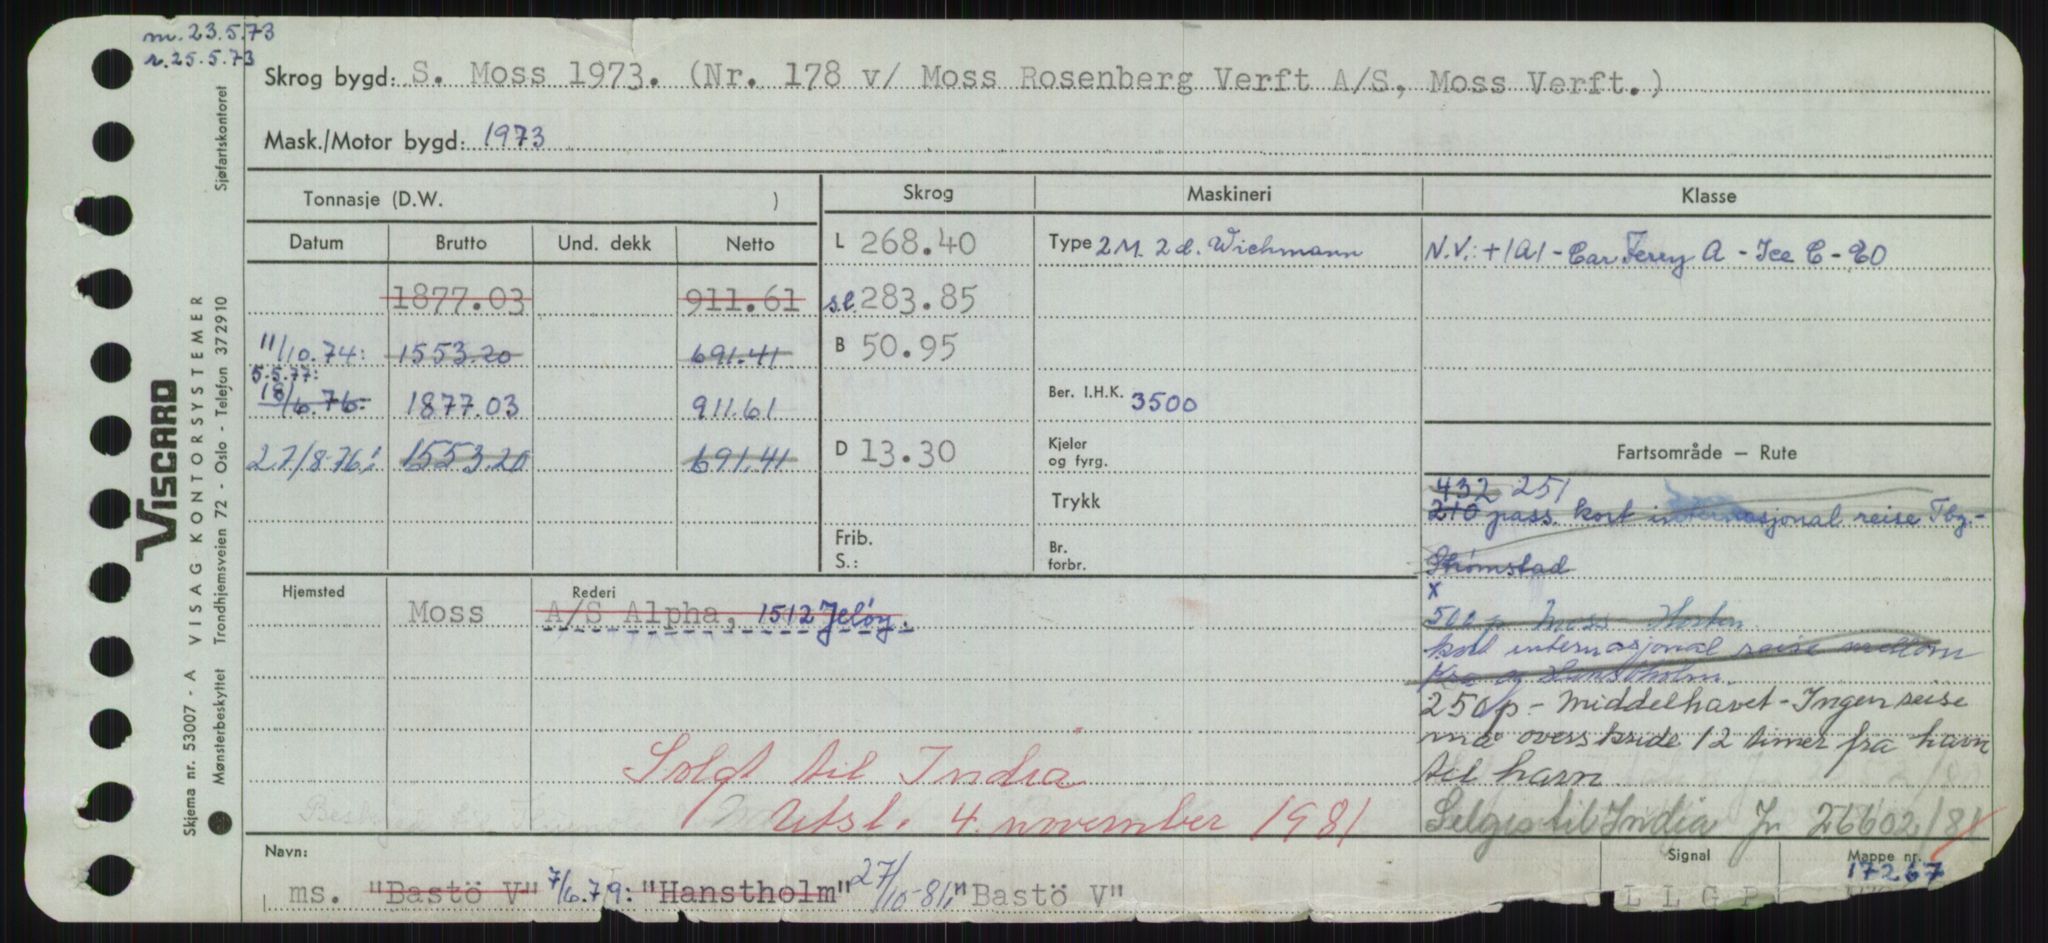 m. 23.5.73
r. 25.5.73
Skrog bygd: S. Moss 1973. (Nr. 178 v/ Moss Rosenberg Verft A/S, Moss Verft.)
Mask./Motor bygd: 1973
Tonnasje (D.W. )
Datum Brutto Und. dekk Netto
1877.03 911.61
11/10.74: 1553.20 691.41
5.5.77:
18/6.76: 1877.03 911.61
27/8-76: 1553.20 691.41
Skrog
L 268.40
s.l. 283.85
B 50.95
D 13.30
Frib.
S.:
Maskineri
Type 2 M. 2 d. Wichmann
Ber. I.H.K. 3500
Kjeler
og fyrg.
Trykk
Br.
forbr.
Klasse
N.V.: +1A1 - Car Ferry A - Ice C - EO
Fartsområde — Rute
432 251
210 pass. kort internasjonal reise Tbg.-
Strömstad
x
500 p Moss - Horten
kort internasjonal reise mellom
Kra og Hanstholm.
250 p - Middelhavet - Ingen reise
må overskride 12 timer fra havn
til havn
Selges til India Jr 26602/81
Hjemsted Rederi
Moss A/S Alpha, 1512 Jeløy.
Solgt til India
Utsl. 4. november 1981
Navn: Signal Mappe nr.
17267
ms. "Bastö V" 7/6.79: "Hanstholm" 27/10-81: "Bastö V" L L G P
VISCARD
Skjema nr. 53007 - A VISAG KONTORSYSTEMER
Mønsterbeskyttet Trondhjemsveien 72 - Oslo - Telefon 372910
Sjøfartskontoret